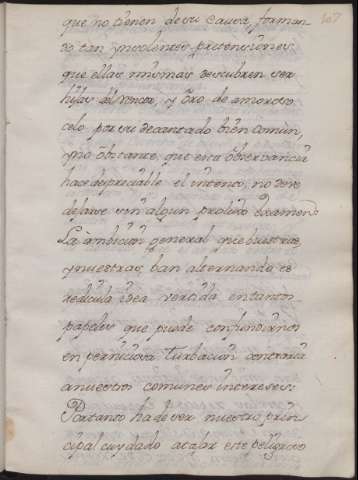 107
que no tienen de su causa, forman-
do tan ynsolentes pretensiones
que ellas mismas descubren ser
hijas del rencor, y no de amoroso
celo por su decantado bien comùn,
y no obstante, que esta observancia
hace depreciable el intento, no deve
dejarse sin algun prolixo examen.
La àmbicion general que buestras
y nuestras, han alternando es
redicula idea vertida en tantos
papeles que puede confundirnos
en perniciosa turbacion contraria
a nuestros comunes intereses:
Portanto ha de ser nuestro prin-
cipal cuydado atajar este peligroso